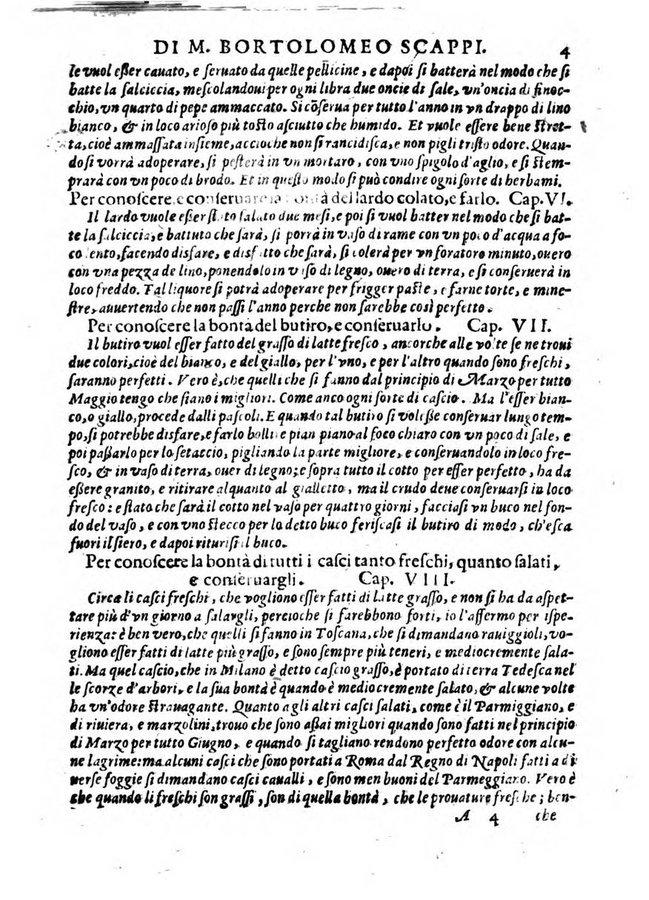 DI M. BORTOLOMEO SCAPPI. 4
le vuol eſſer cauato, e ſeruato da quelle pellicine, e dapoi ſi batterà nel modo che ſi
batte la ſalciccia, meſcolandoui per ogni libra due oncie di ſale, vn'oncia di finoc-
chio, vn quarto di pepe ammaccato. Si cõſerua per tutto l'anno in vn drappo di lino
bianco, & in loco arioſo più toſto aſciutto che humido. Et vuole eſſere bene ſtret-
ta, cioè ammaſſata inſieme, accioche non ſi rancidiſca, e non pigli triſto odore. Quan-
do ſi vorrà adoperare, ſi peſterà in vn mortaro, con vno ſpigolo d'aglio, e ſi ſtem-
prarà con vn poco di brodo. Et in queſto modo ſi può condire ogni ſorte di herbami.
Per conoſcere, e conſeruare la bontà del lardo colato, e farlo. Cap. VI.
Il lardo vuole eſſer ſtato ſalato due meſi, e poi ſi vuol batter nel modo che ſi bat-
te la ſalciccia, e battuto che ſarà, ſi porrà in vaſo di rame con vn poco d'acqua a fo-
co lento, facendo disfare, e disfatto che ſarà, ſi colerà per vn foratoro minuto, ouero
con vna pezza de lino, ponendolo in vaſo di legno, ouero di terra, e ſi conſeruerà in
loco freddo. Tal liquore ſi potrà adoperare per frigger paſte, e farne torte, e mine-
ſtre, auuertendo che non paſſi l'anno perche non ſarebbe coſi perfetto.
Per conoſcere la bontà del butiro, e conſeruarlo. Cap. VII.
Il butiro vuol eſſer fatto del graſſo di latte freſco, ancorche alle volte ſe ne troui
due colori, cioè del bianco, e del giallo, per l'vno, e per l'altro quando ſono freſchi,
ſaranno perfetti. Vero è, che quelli ſi fanno dal principio di Marzo per tutto
Maggio tengo che ſiano i migliori. Come anco ogni ſorte di caſcio. Ma l'eſſer bian-
co, o giallo, procede dalli paſcoli. E quando tal butiro ſi voleſſe conſeruar lungo tem-
po, ſi potrebbe disfare, e farlo bollire pian piano al foco chiaro con vn poco di ſale, e
poi paſſarlo per lo ſetaccio, pigliando la parte migliore, e conſeruandolo in loco fre-
ſco, & in vaſo di terra, ouer di legno; e ſopra tutto il cotto per eſſer perfetto, ha da
eſſere granito, e ritirare alquanto al gialletto, ma il crudo deue conſeruarſi in loco
freſco: e ſtato che ſarà il cotto nel vaſo per quattro giorni, facciaſi vn buco nel fon-
do del vaſo, e con vno ſtecco per lo detto buco feriſcaſi il butiro di modo, ch'eſca
fuori il ſiero, e dapoi rituriſi il buco.
Per conoſcere la bontà di tutti i caſci tanto freſchi, quanto ſalati,
e conſeruargli. Cap. VIII.
Circa li caſci freſchi, che vogliono eſſer fatti di latte graſſo, e non ſi ha da aſpet-
tare più d'vn giorno a ſalargli, percioche ſi farebbono forti, io l'affermo per iſpe-
rienza: è ben vero, che quelli ſi fanno in Toſcana, che ſi dimandano rauiggioli, vo-
gliono eſſer fatti di latte più graſſo, e ſono ſempre più teneri, e mediocremente ſala-
ti. Ma quel caſcio, che in Milano è detto caſcio graſſo, è portato di terra Tedeſca nel
le ſcorze d'arbori, e la ſua bontà è quando è mediocremente ſalato, & alcune volte
ha vn'odore ſtrauagante. Quanto agli altri caſci ſalati, come è il Parmiggiano, e
di riuiera, e marzolini, trouo che ſono aſſai migliori quando ſono fatti nel principio
di Marzo per tutto Giugno, e quando ſi tagliano rendono perfetto odore con alcu-
ne lagrime: ma alcuni caſci che ſono portati a Roma dal Regno di Napoli fatti a di
uerſe foggie ſi dimandano caſci caualli, e ſono men buoni del Parmeggiano. Vero è
che quando li freſchi ſon graſſi, ſon di quella bontà, che le prouature freſche; ben-
A 4 che